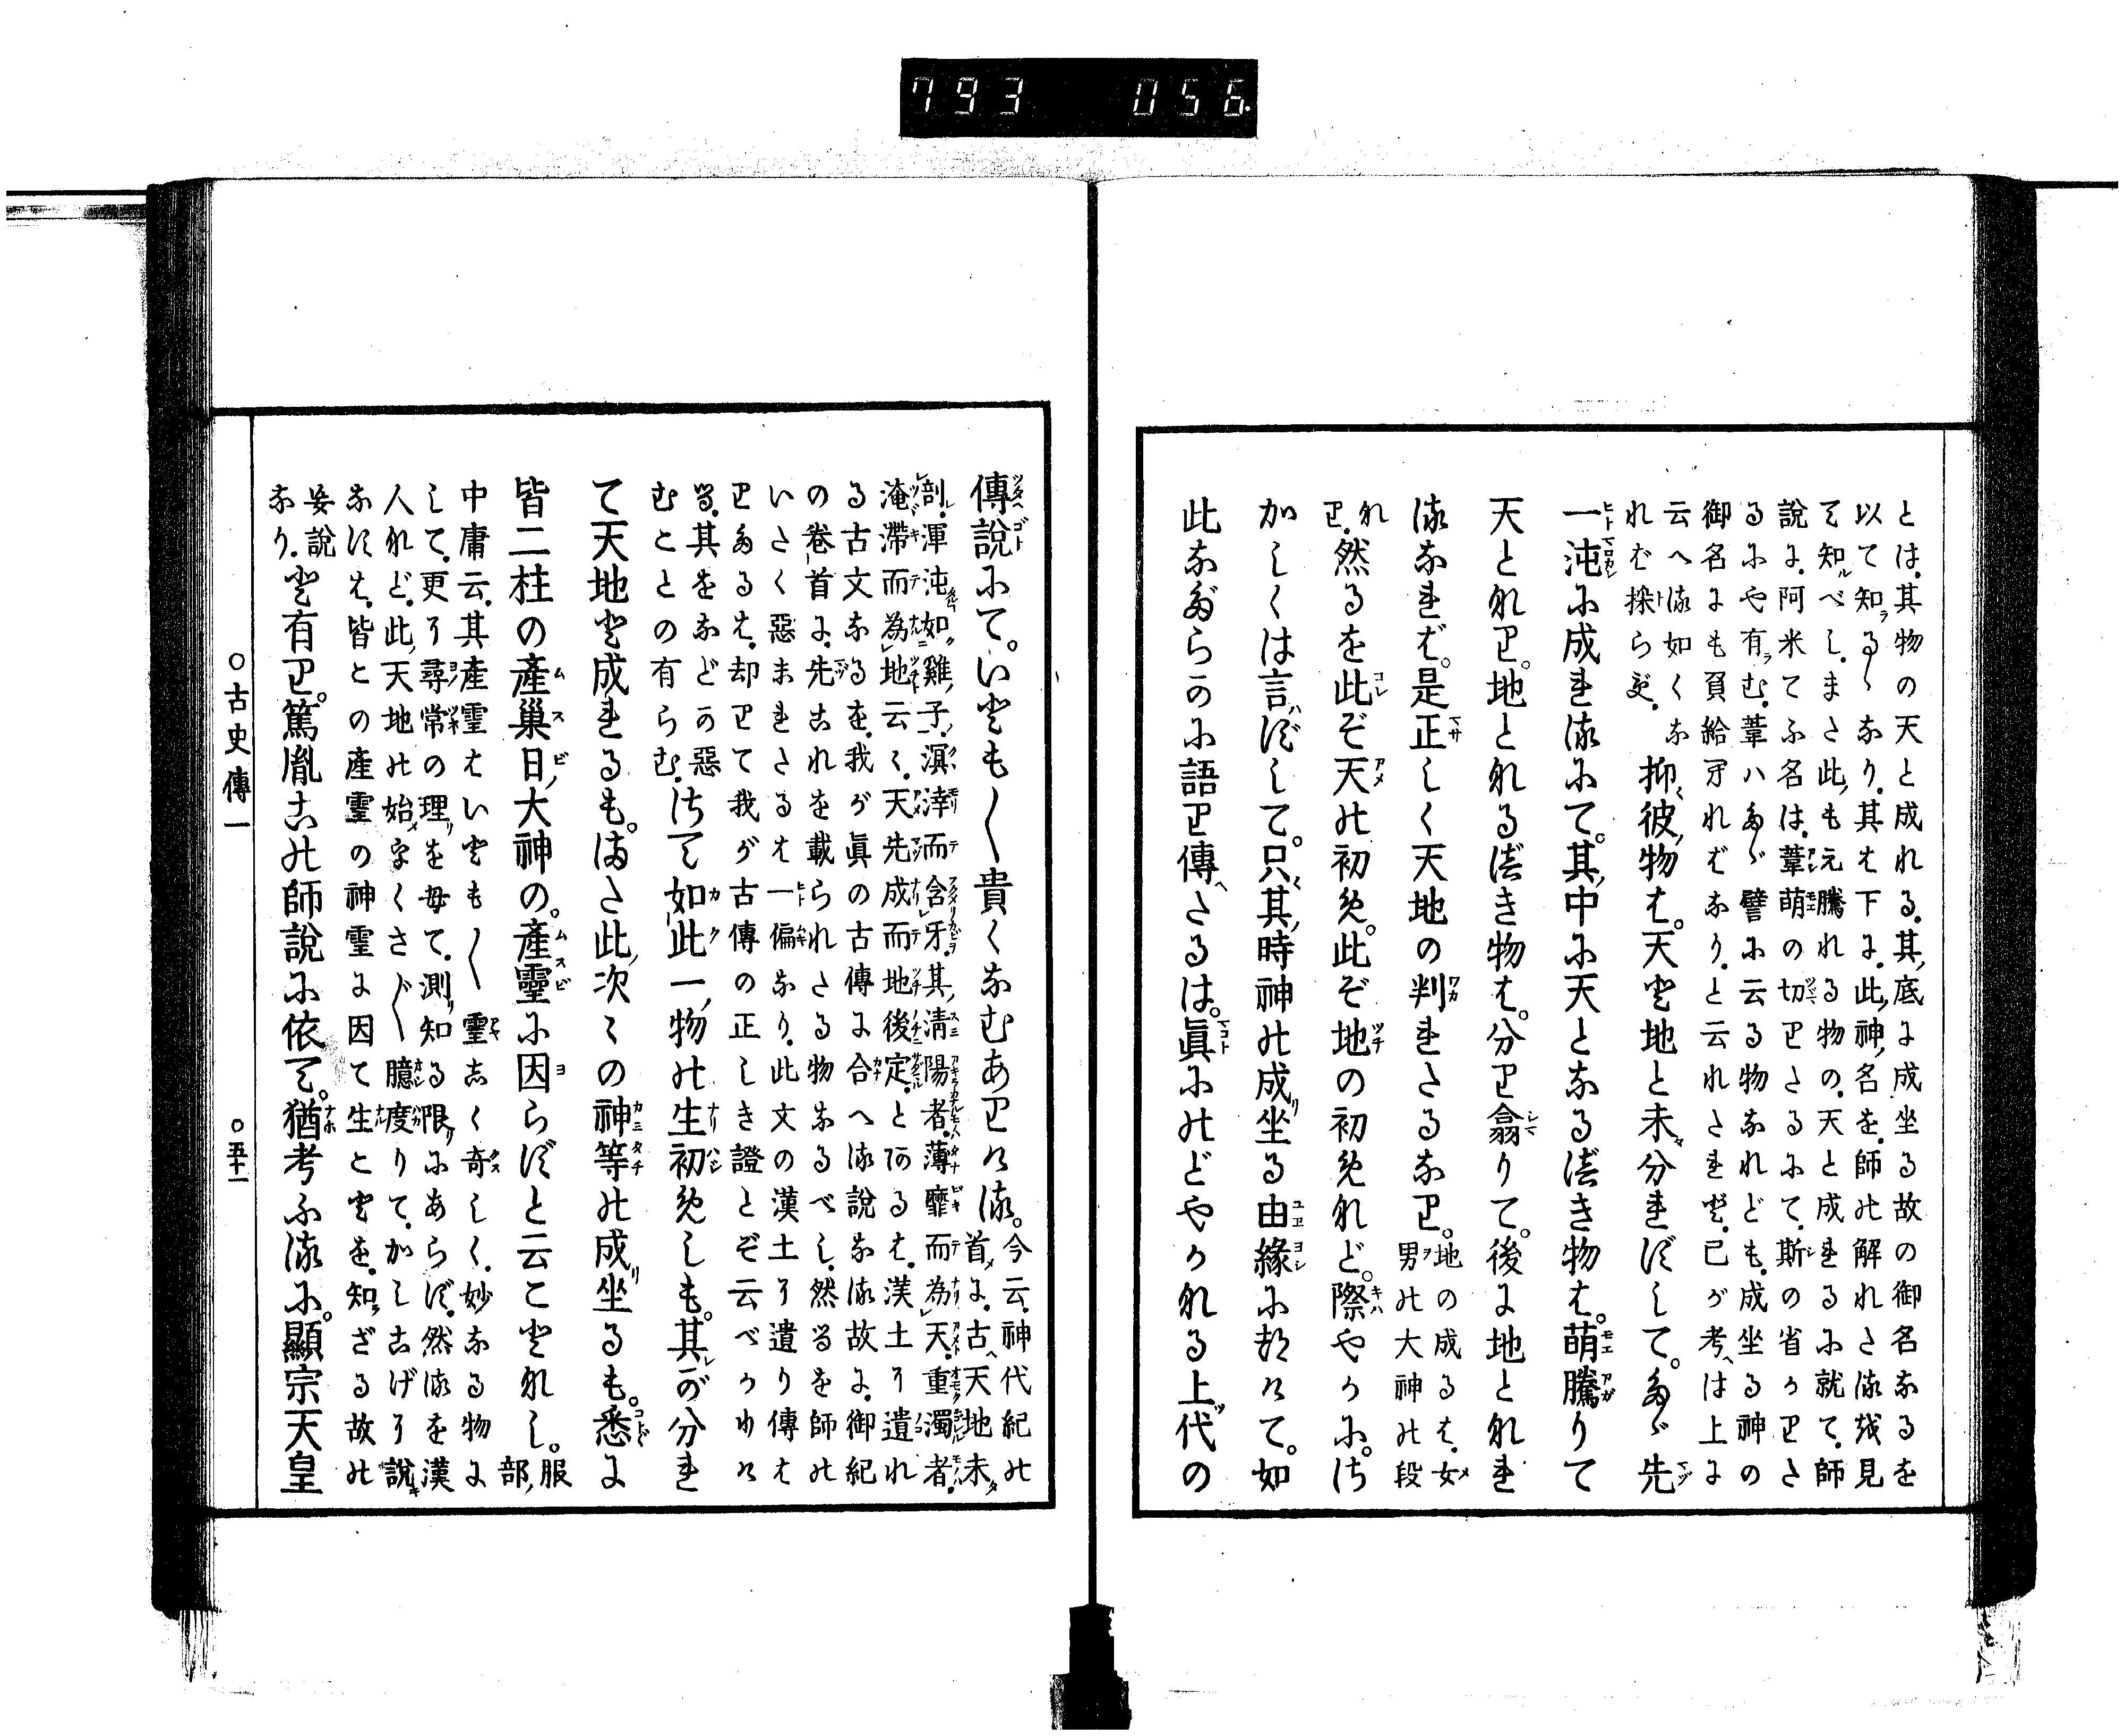 793 056
とは、其物の天と成れる、其底に成坐る故の御名なるを
以て知るゝなり、其は下に、此神名を、師の解れたる越見
て知べし、また此も元騰れる物の、天と成れるに就て、師
説に、阿米てふ名は、葦萌の切りたるにて、斯の省かりた
るにや有む、葦ハたゞ譬に云る物なれども、成坐る神の
御名にも負給ればなり、と云れたれど、已が考は上に
云へる如くな
れば採らず、抑彼物は。天と地と未分れずして。たゞ先
一沌に成れるにて。其中に天となるべき物は。萌騰りて
天となり。地となるべき物は。分り翕りて。後に地となれ
るなれば。是正しく天地の判れたるなり。地の成るは、女
男の大神の段
なり、然るを此ぞ天の初め。此ぞ地の初めなれど。際やかに。さ
かしくは言ずして。只其時神の成坐る由縁に記けて。如
此なだらかに語り傳へたるは。眞にのどやかなる上代の
傳説にて。いとも〳〵貴くなむありける。今云、神代紀の
首に、古天地未
剖、渾沌如雞子、溟涬而含牙、其清陽者、薄靡而爲天、重濁者、
淹滯而爲地云々、天先成而地後定、とあるは、漢土に遺れ
る古文なるを、我が眞の古傳に合へる説なる故に、御紀
の巻首に、先これを載られたる物なるべし、然るを師の
いたく惡まれたるは一偏なり、此文の漢土に遺り傳は
りたるは、却りて我が古傳の正しき證とぞ云べかりけ
る、其をなどか惡
むことの有らむ、さて如此一物の生初めしも。其が分れ
て天地と成れるも。また此次々の神等の成坐るも。悉に
皆二柱の産巣日大神の。産靈に因らずと云ことなし。服
部
中庸云、其産靈はいとも〳〵靈しく奇しく、妙なる物に
して、更に尋常の理を毋て、測知る限にあらず、然るを漢
人など、此天地の始をくさ〴〵臆度りて、かしこげに説
なすは、皆との産靈の神靈に因て生とを、知ざる故の
妄説
なり、と有り。篤胤この師説に依て。猶考ふるに。顯宗天皇
○古史傳一　○五十一